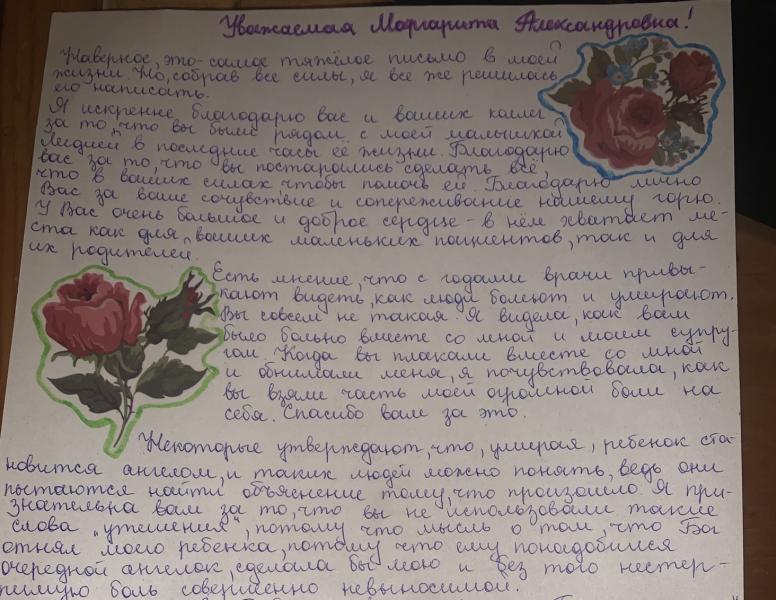 Уважаемая Маргарита Александровна!
Наверное, это-самое тяжёлое письмо в моей
жизни. Но, собрав все силы, я все же решилась
его написать.
Я искренне благодарю вас и ваших коллег
за то, что вы были рядом с моей малышкой
Лидией в последние часы её жизни. Благодарю
вас за то, что вы постарались сделать всё,
что в ваших силах чтобы помочь ей. Благодарю лично
Вас за ваше сочувствие и сопереживание нашему горю.
У Вас очень большое и доброе сердце - в нём хватает ме-
ста как для ваших маленьких пациентов, так и для
их родителей.
Есть мнение, что с годами врачи привы-
кают видеть, как люди болеют и умирают.
Вы совсем не такая. Я видела, как вам
было больно вместе со мной и моим супру-
гом. Когда вы плакали вместе со мной
и обнимали меня, я почувствовала, как
вы взяли часть моей огромной боли на
себя. Спасибо вам за это.
Некоторые утверждают, что, умирая, ребенок ста-
новится ангелом, и таких людей можно понять, ведь они
пытаются найти объяснение тому, что произошло. Я при-
знательна вам за то, что вы не использовали такие
слова "утешения", потому что мысль о том, что Бог
отнял моего ребенка, потому что ему понадобился
очередной ангелок, сделала бы мою и без того нестер-
пимую боль совершенно невыносимой.